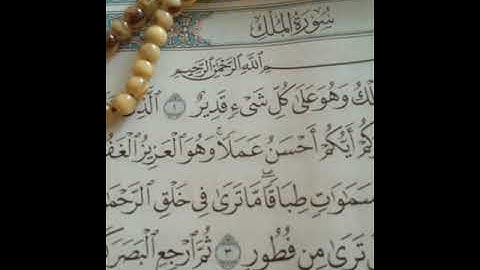 سُورَةُ المُلْكِ
ـمِ ٱللَّهِ ٱلرَّحْمَٰنِ ٱلرَّحِيمِ
ـلْكُ وَهُوَ عَلَىٰ كُلِّ شَىْءٍ قَدِيرٌ ١ ٱلَّذِى
ـكُمْ أَيُّكُمْ أَحْسَنُ عَمَلًا ۚ وَهُوَ ٱلْعَزِيزُ ٱلْغَفُـ
سَمَٰوَٰتٍ طِبَاقًا ۖ مَّا تَرَىٰ فِى خَلْقِ ٱلرَّحْمَـ
تَرَىٰ مِن فُطُورٍ ٣ ثُمَّ ٱرْجِعِ ٱلْبَصَرَ كَـ